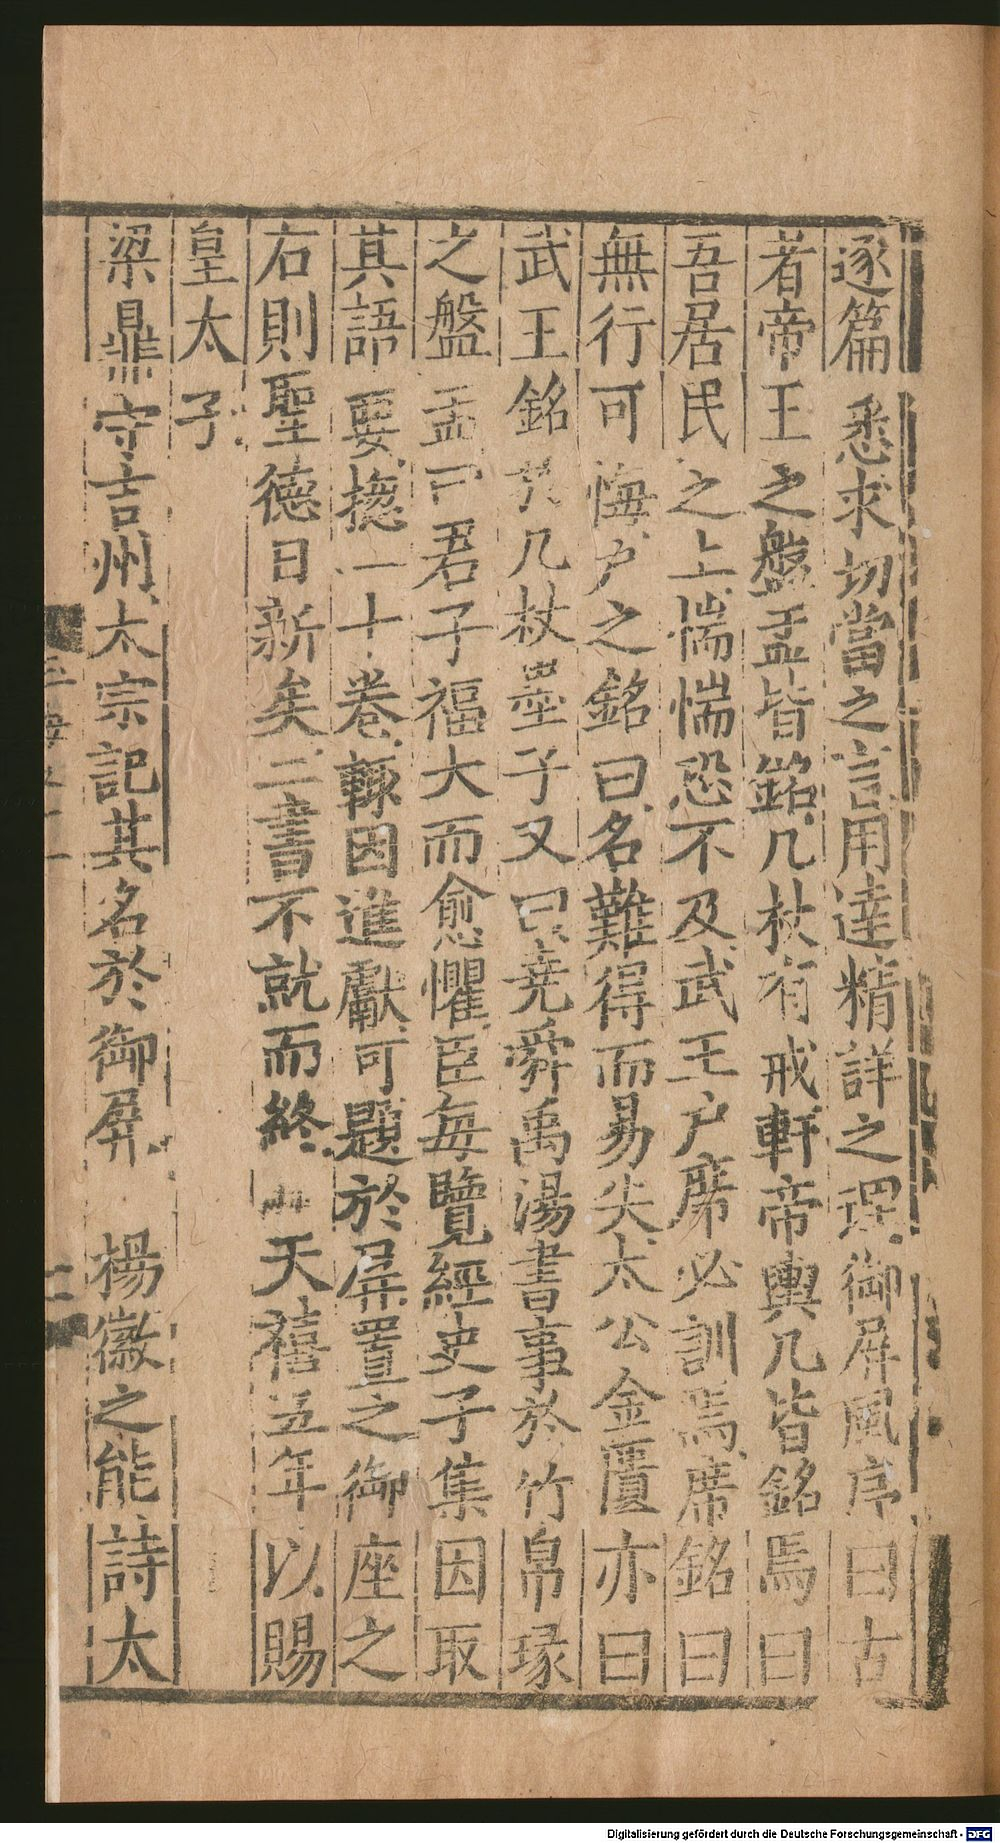 逐篇悉求切當之言用達精詳之理御屏風序曰古
者帝王之盤盂皆銘几杖有戒軒帝輿几皆銘焉曰
吾居民之上惴惴恐不及武王户席必訓焉席銘曰
無行可悔户之銘曰名難得而易失太公金匱亦曰
武王銘於几杖墨子又曰堯舜禹湯書事於竹帛琢
之盤盂曰君子福大而愈懼臣每覽經史子集因取
其語要揔一十卷輙因進獻可題於屏置之御座之
右則聖德日新矣二書不就而終 天禧五年以賜
皇太子
梁鼎守吉州太宗記其名於御屏 楊徽之能詩太
Digitalisierung gefördert durch die Deutsche Forschungsgemeinschaft - DFG